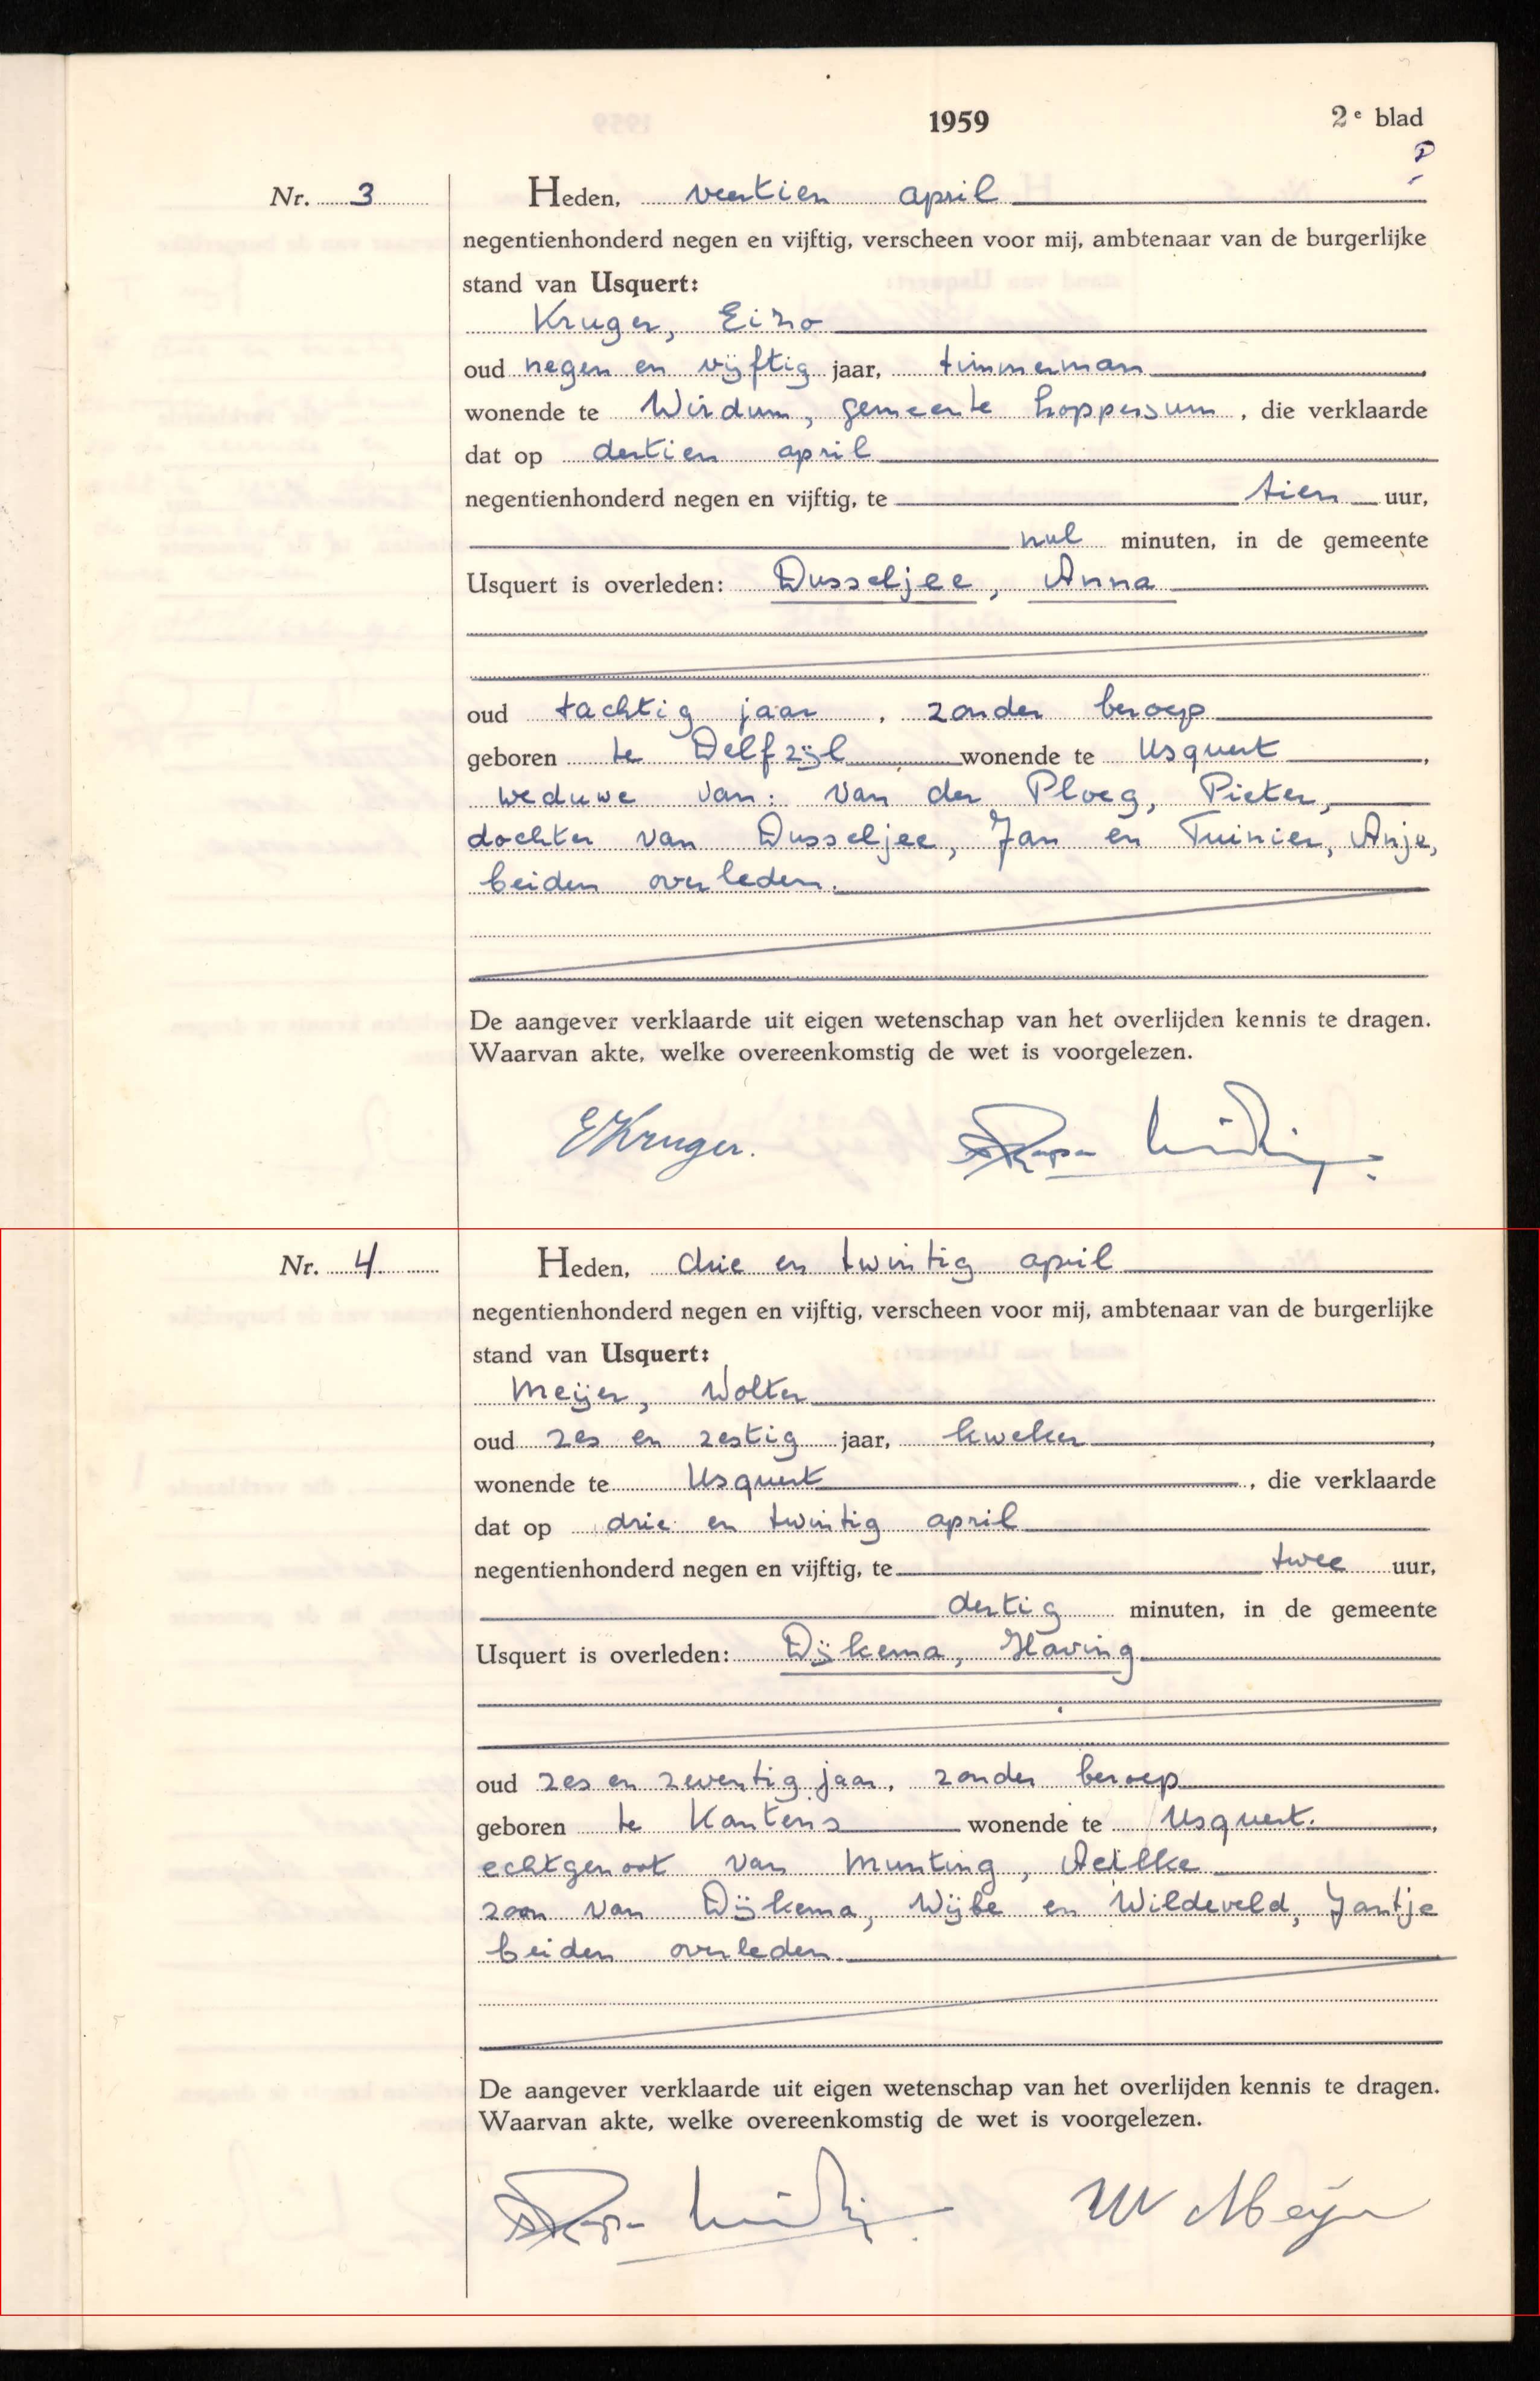 1959
2e blad
Nr. 3
Heden, veertien april
negentienhonderd negen en vijftig, verscheen voor mij, ambtenaar van de burgerlijke
stand van Usquert:
Kruger, Eizo
oud negen en vijftig jaar, timmerman
wonende te Wirdum, gemeente Loppersum, die verklaarde
dat op dertien april
negentienhonderd negen en vijftig, te tien uur,
nul minuten, in de gemeente
Usquert is overleden: Dusseljee, Anna
oud tachtig jaar, zonder beroep
geboren te Delfzijl wonende te Usquert,
weduwe van: van der Ploeg, Pieter,
dochter van Dusseljee, Jan en Tuinier, Anje,
beiden overleden.
De aangever verklaarde uit eigen wetenschap van het overlijden kennis te dragen.
Waarvan akte, welke overeenkomstig de wet is voorgelezen.
EKruger.
Nr. 4
Heden, drie en twintig april
negentienhonderd negen en vijftig, verscheen voor mij, ambtenaar van de burgerlijke
stand van Usquert:
Meijer, Wolter
oud zes en zestig jaar, kweker,
wonende te Usquert, die verklaarde
dat op drie en twintig april
negentienhonderd negen en vijftig, te twee uur,
dertig minuten, in de gemeente
Usquert is overleden: Dijkema, Having
oud zes en zeventig jaar, zonder beroep
geboren te Kantens wonende te Usquert.,
echtgenoot van Munting, Aeilke
zoon van Dijkema, Wijbe en Wildeveld, Jantje
beiden overleden.
De aangever verklaarde uit eigen wetenschap van het overlijden kennis te dragen.
Waarvan akte, welke overeenkomstig de wet is voorgelezen.
W Meijer